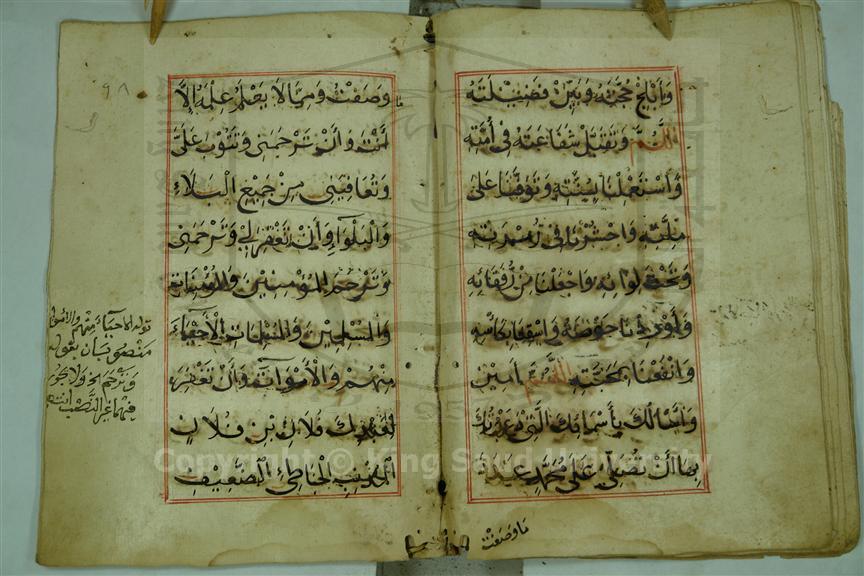 وَأَبْلِجْ حُجَّتَهُ وَبَيِّنْ فَضِيلَتَهُ
اللَّهُمَّ وَتَقَبَّلْ شَفَاعَتَهُ فِي أُمَّتِهِ
وَاسْتَعْمِلْنَا بِسُنَّتِهِ وَتَوَفَّنَا عَلَى
مِلَّتِهِ وَاحْشُرْنَا فِي زُمْرَتِهِ
وَتَحْتَ لِوَائِهِ وَاجْعَلْنَا مِنْ رُفَقَائِهِ
وَأَوْرِدْنَا حَوْضَهُ وَاسْقِنَا بِكَأْسِهِ
وَانْفَعْنَا بِمَحَبَّتِهِ اللَّهُمَّ آمِينَ
وَأَسْأَلُكَ بِأَسْمَائِكَ الَّتِي دَعَوْتُكَ
بِهَا أَنْ تُصَلِّيَ عَلَى مُحَمَّدٍ عَدَدَ
مَا وَصَفْتُ
٩٨
وَصَفْتُ وَمِمَّا لَا يَعْلَمُ عِلْمَهُ إِلَّا
أَنْتَ وَأَنْ تَرْحَمَنِي وَتَتُوبَ عَلَيَّ
وَتُعَافِيَنِي مِنْ جَمِيعِ الْبَلَاءِ
وَالْبَلْوَاءِ وَأَنْ تَغْفِرَ لِي وَتَرْحَمَنِي
وَتَرْحَمَ الْمُؤْمِنِينَ وَالْمُؤْمِنَاتِ
وَالْمُسْلِمِينَ وَالْمُسْلِمَاتِ الْأَحْيَاءَ
مِنْهُمْ وَالْأَمْوَاتَ وَأَنْ تَغْفِرَ
لِعَبْدِكَ فُلَانِ بْنِ فُلَانٍ
الْمُذْنِبِ الْخَاطِئِ الضَّعِيفِ
قوله الأحياء منهم والأموات
منصوبان بقوله
وترحم ولا يجوز
فيهما غير النصب انتهى
Copyright © King Saud University